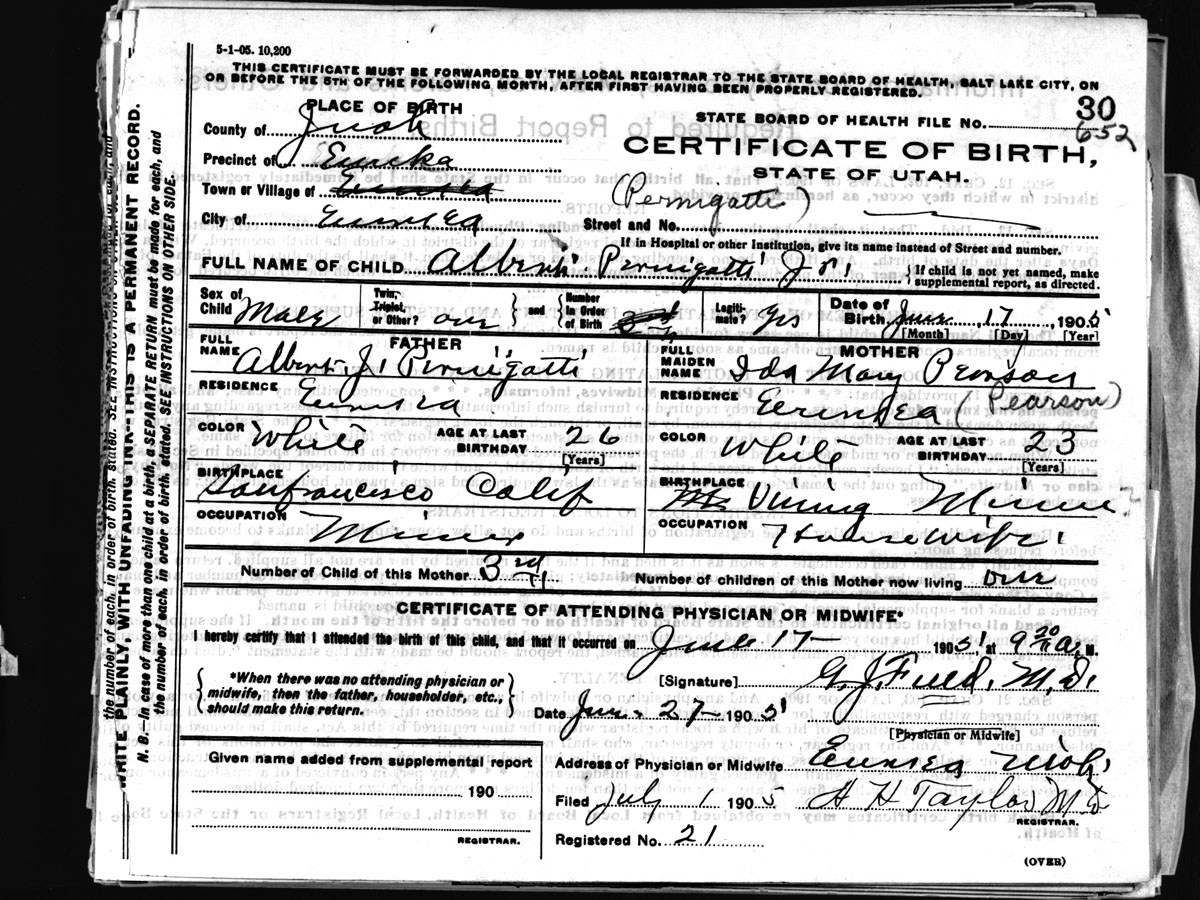 5-1-05. 10,200
THIS CERTIFICATE MUST BE FORWARDED BY THE LOCAL REGISTRAR TO THE STATE BOARD OF HEALTH, SALT LAKE CITY, ON
OR BEFORE THE 5TH OF THE FOLLOWING MONTH, AFTER FIRST HAVING BEEN PROPERLY REGISTERED.
PLACE OF BIRTH
30
STATE BOARD OF HEALTH FILE NO. 652
County of Juab
CERTIFICATE OF BIRTH,
Precinct of Eureka
STATE OF UTAH.
Town or Village of Eureka
(Pernigatti)
City of Eureka
Street and No.
If in Hospital or other Institution, give its name instead of Street and number.
FULL NAME OF CHILD Albert Pernigatti Jr
{If child is not yet named, make
supplemental report, as directed.
Sex of Child Male
Twin, Triplet, or Other? one
and
Number in Order of Birth
Legitimate? Yes
Date of Birth June 17, 1905
[Month] [Day] [Year]
FATHER
FULL NAME Albert J. Pernigatti
RESIDENCE Eureka
COLOR White
AGE AT LAST BIRTHDAY 26
[Years]
BIRTHPLACE Sanfrancisco Calif
OCCUPATION Miner
MOTHER
FULL MAIDEN NAME Ida Mary Pearson
RESIDENCE Eureka (Pearson)
COLOR White
AGE AT LAST BIRTHDAY 23
[Years]
BIRTHPLACE Vining Minn
OCCUPATION Housewife
Number of Child of this Mother 3rd
Number of children of this Mother now living one
CERTIFICATE OF ATTENDING PHYSICIAN OR MIDWIFE*
I hereby certify that I attended the birth of this child, and that it occurred on June 17 1905 at 9 20 a. M.
*When there was no attending physician or
midwife, then the father, householder, etc.,
should make this return.
[Signature] G. J. Field, M.D.
Date Jun. 27 1905
[Physician or Midwife]
Given name added from supplemental report
190
REGISTRAR.
Address of Physician or Midwife Eureka Utah
Filed July 1 1905 A H Taylor M D
REGISTRAR.
Registered No. 21
(OVER)
WRITE PLAINLY WITH UNFADING INK--THIS IS A PERMANENT RECORD.
N. B.--In case of more than one child at a birth, a SEPARATE RETURN must be made for each, and
the number of each, in order of birth, stated. SEE INSTRUCTIONS ON OTHER SIDE.